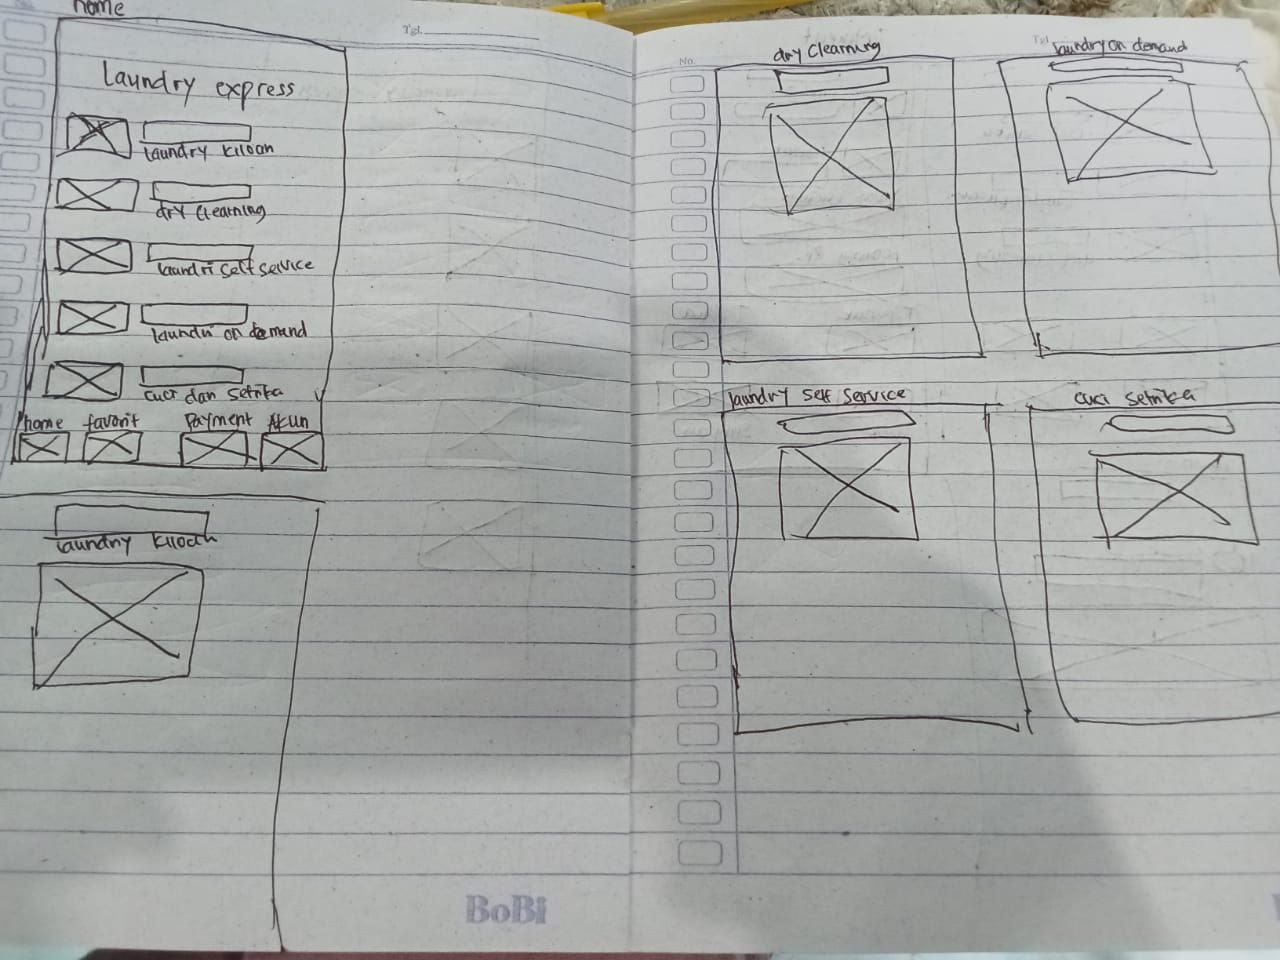 home
Tgl.
laundry express
laundry kiloan
dry clearning
laundri self service
laundri on demand
cuci dan setrika
home favorit payment Akun
laundry kiloan
BoBi
No.
dry clearning
laundry on demand
laundry self service
cuci setrika